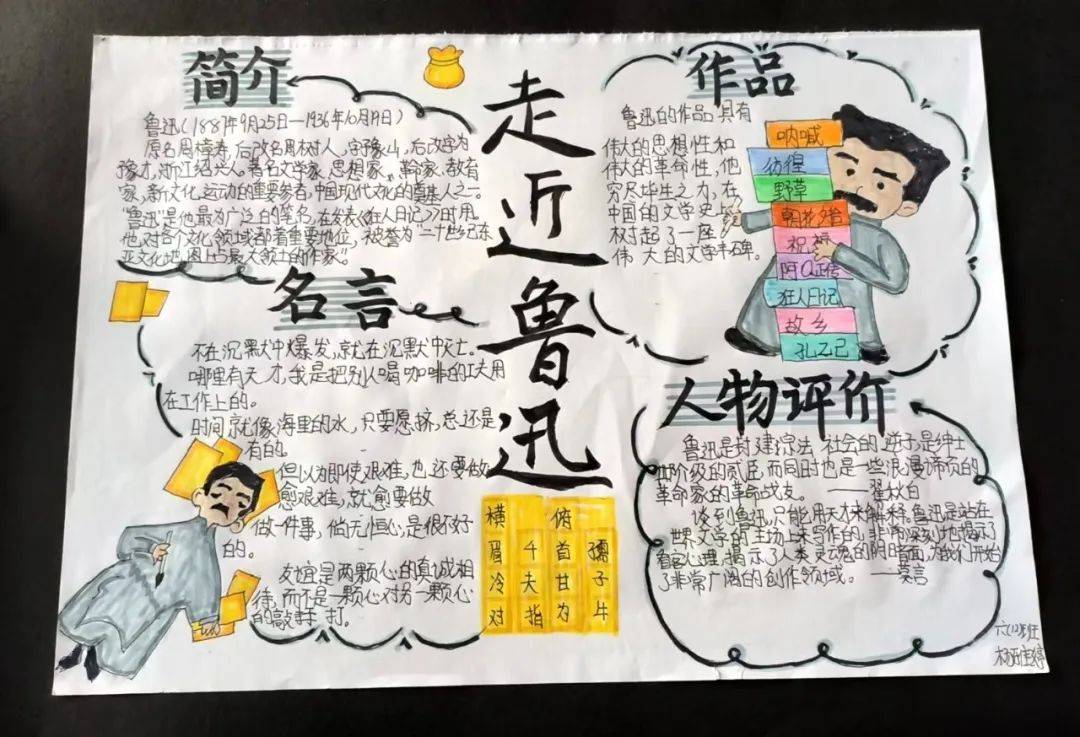 走近鲁迅
简介
鲁迅(1881年9月25日—1936年10月19日)
原名周樟寿,后改名周树人,字豫山,后改字为
豫才,浙江绍兴人。著名文学家、思想家、革命家、教育
家、新文化运动的重要参者,中国现代文化的奠基人之一。
“鲁迅”是他最为广泛的笔名,在发表《狂人日记》时用。
他对各个文化领域都着重要地位,被誉为“二十世纪东
亚文化地图上占最大领土的作家。”
名言
不在沉默中爆发,就在沉默中灭亡。
哪里有天才,我是把别人喝咖啡的工夫用
在工作上的。
时间就像海里的水,只要愿挤,总还是
有的。
但以为即使艰难,也还要做,
愈艰难,就愈要做
做一件事,倘无恒心,是很不好
的。
友谊是两颗心的真诚相
待,而不是一颗心对另一颗心
的敲打。
横眉冷对
千夫指
俯首甘为
孺子牛
作品
鲁迅的作品具有
伟大的思想性和
伟大的革命性,他
穷尽毕生之力,在
中国的文学史上
树起了一座
伟大的文学丰碑。
呐喊
彷徨
野草
朝花夕拾
祝福
阿Q正传
狂人日记
故乡
孔乙己
人物评价
鲁迅是封建宗法社会的逆子,是绅士
阶级的贰臣,而同时也是一些浪漫谛克的
革命家的革命战友。——瞿秋白
谈到鲁迅,只能用天才来解释。鲁迅是站在
世界文学的立场上来写作的,非常深刻地揭示了
看客心理,揭示了人类灵魂的阴暗面,为我们开始
了非常广阔的创作领域。——莫言
六(12)班